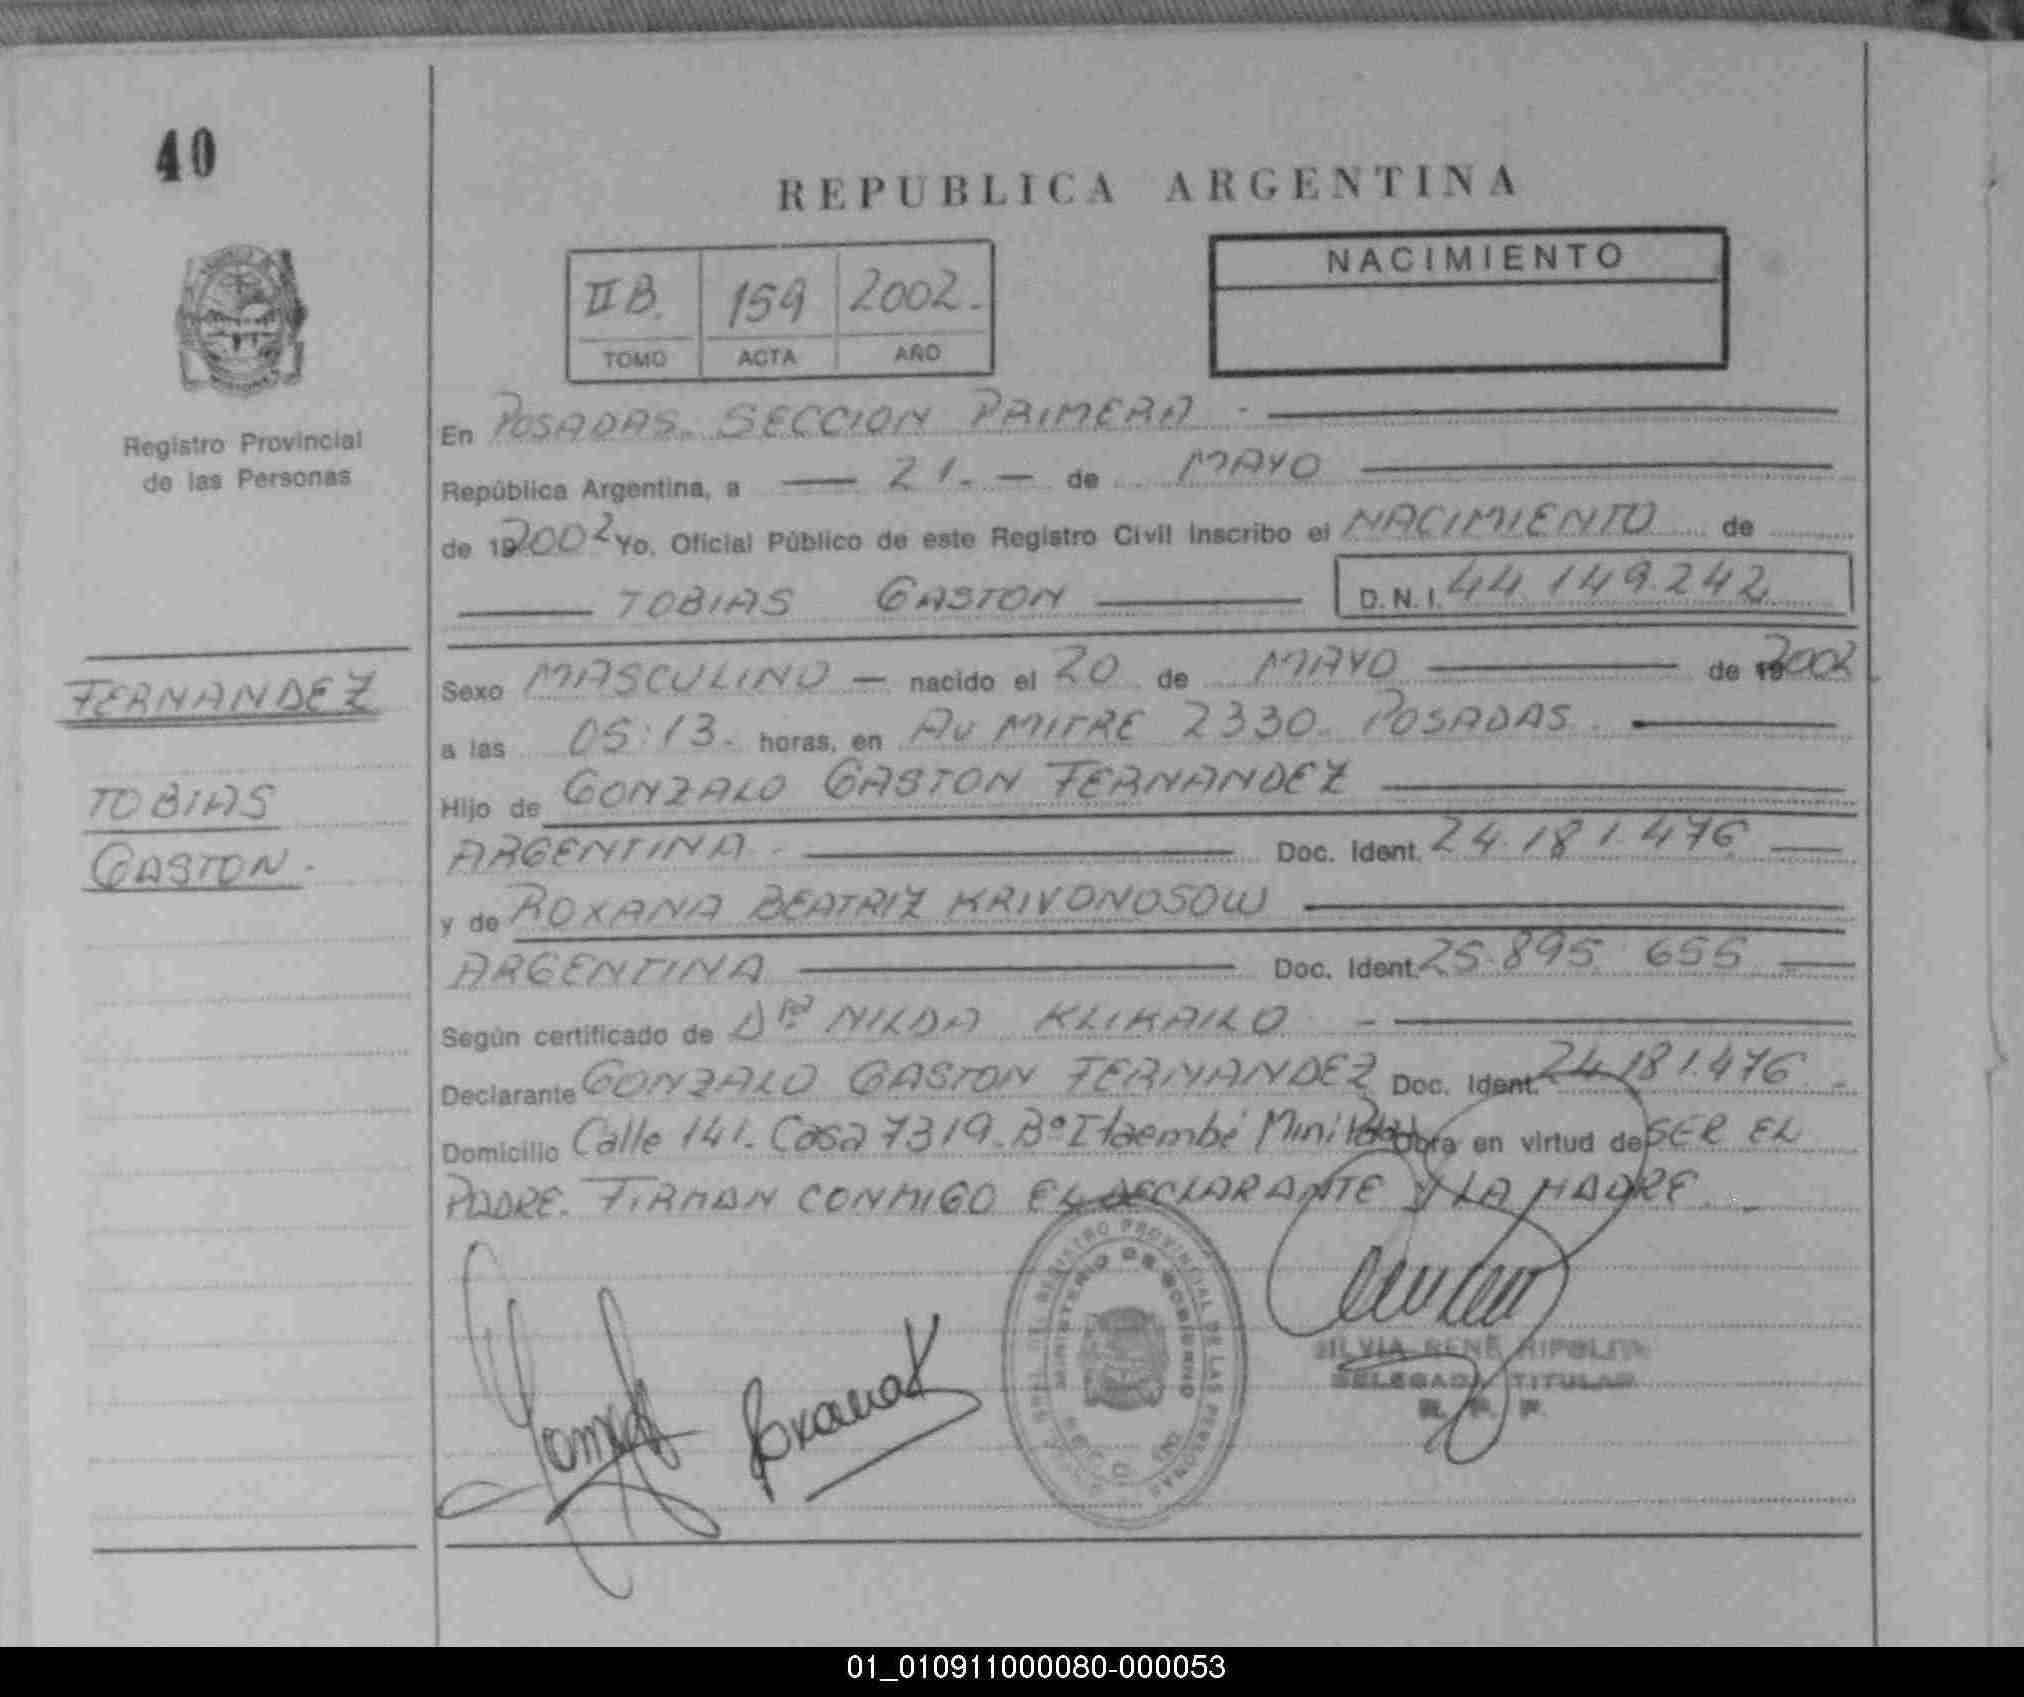 40
REPUBLICA ARGENTINA
IIB. 159 2002.
TOMO ACTA AÑO
NACIMIENTO
Registro Provincial
de las Personas
En POSADAS. SECCION PRIMERA -
República Argentina, a — 21. — de MAYO
de 192002 Yo, Oficial Público de este Registro Civil inscribo el NACIMIENTO de
TOBIAS GASTON D.N.I. 44.149.242
FERNANDEZ
TOBIAS
GASTON.
Sexo MASCULINO — nacido el 20 de MAYO de 192002
a las 05:13. horas, en Av MITRE 2330. POSADAS.
Hijo de GONZALO GASTON FERNANDEZ
ARGENTINA - Doc. Ident. 24.181.476
y de ROXANA BEATRIZ KRIVONOSOW
ARGENTINA Doc. Ident. 25.895.655
Según certificado de DRA NILDA KLIKAILO -
Declarante GONZALO GASTON FERNANDEZ Doc. Ident. 24.181.476. -
Domicilio Calle 141. Casa 7319. B° Itaembé Miní Obra en virtud de SER EL
PADRE. FIRMAN CONMIGO EL DECLARANTE Y LA MADRE. -
REGISTRO PROVINCIAL DE LAS PERSONAS
MINISTERIO DE GOBIERNO
SILVIA RENÉ RIPOLL
DELEGADA TITULAR
R. P. P.
01_010911000080-000053